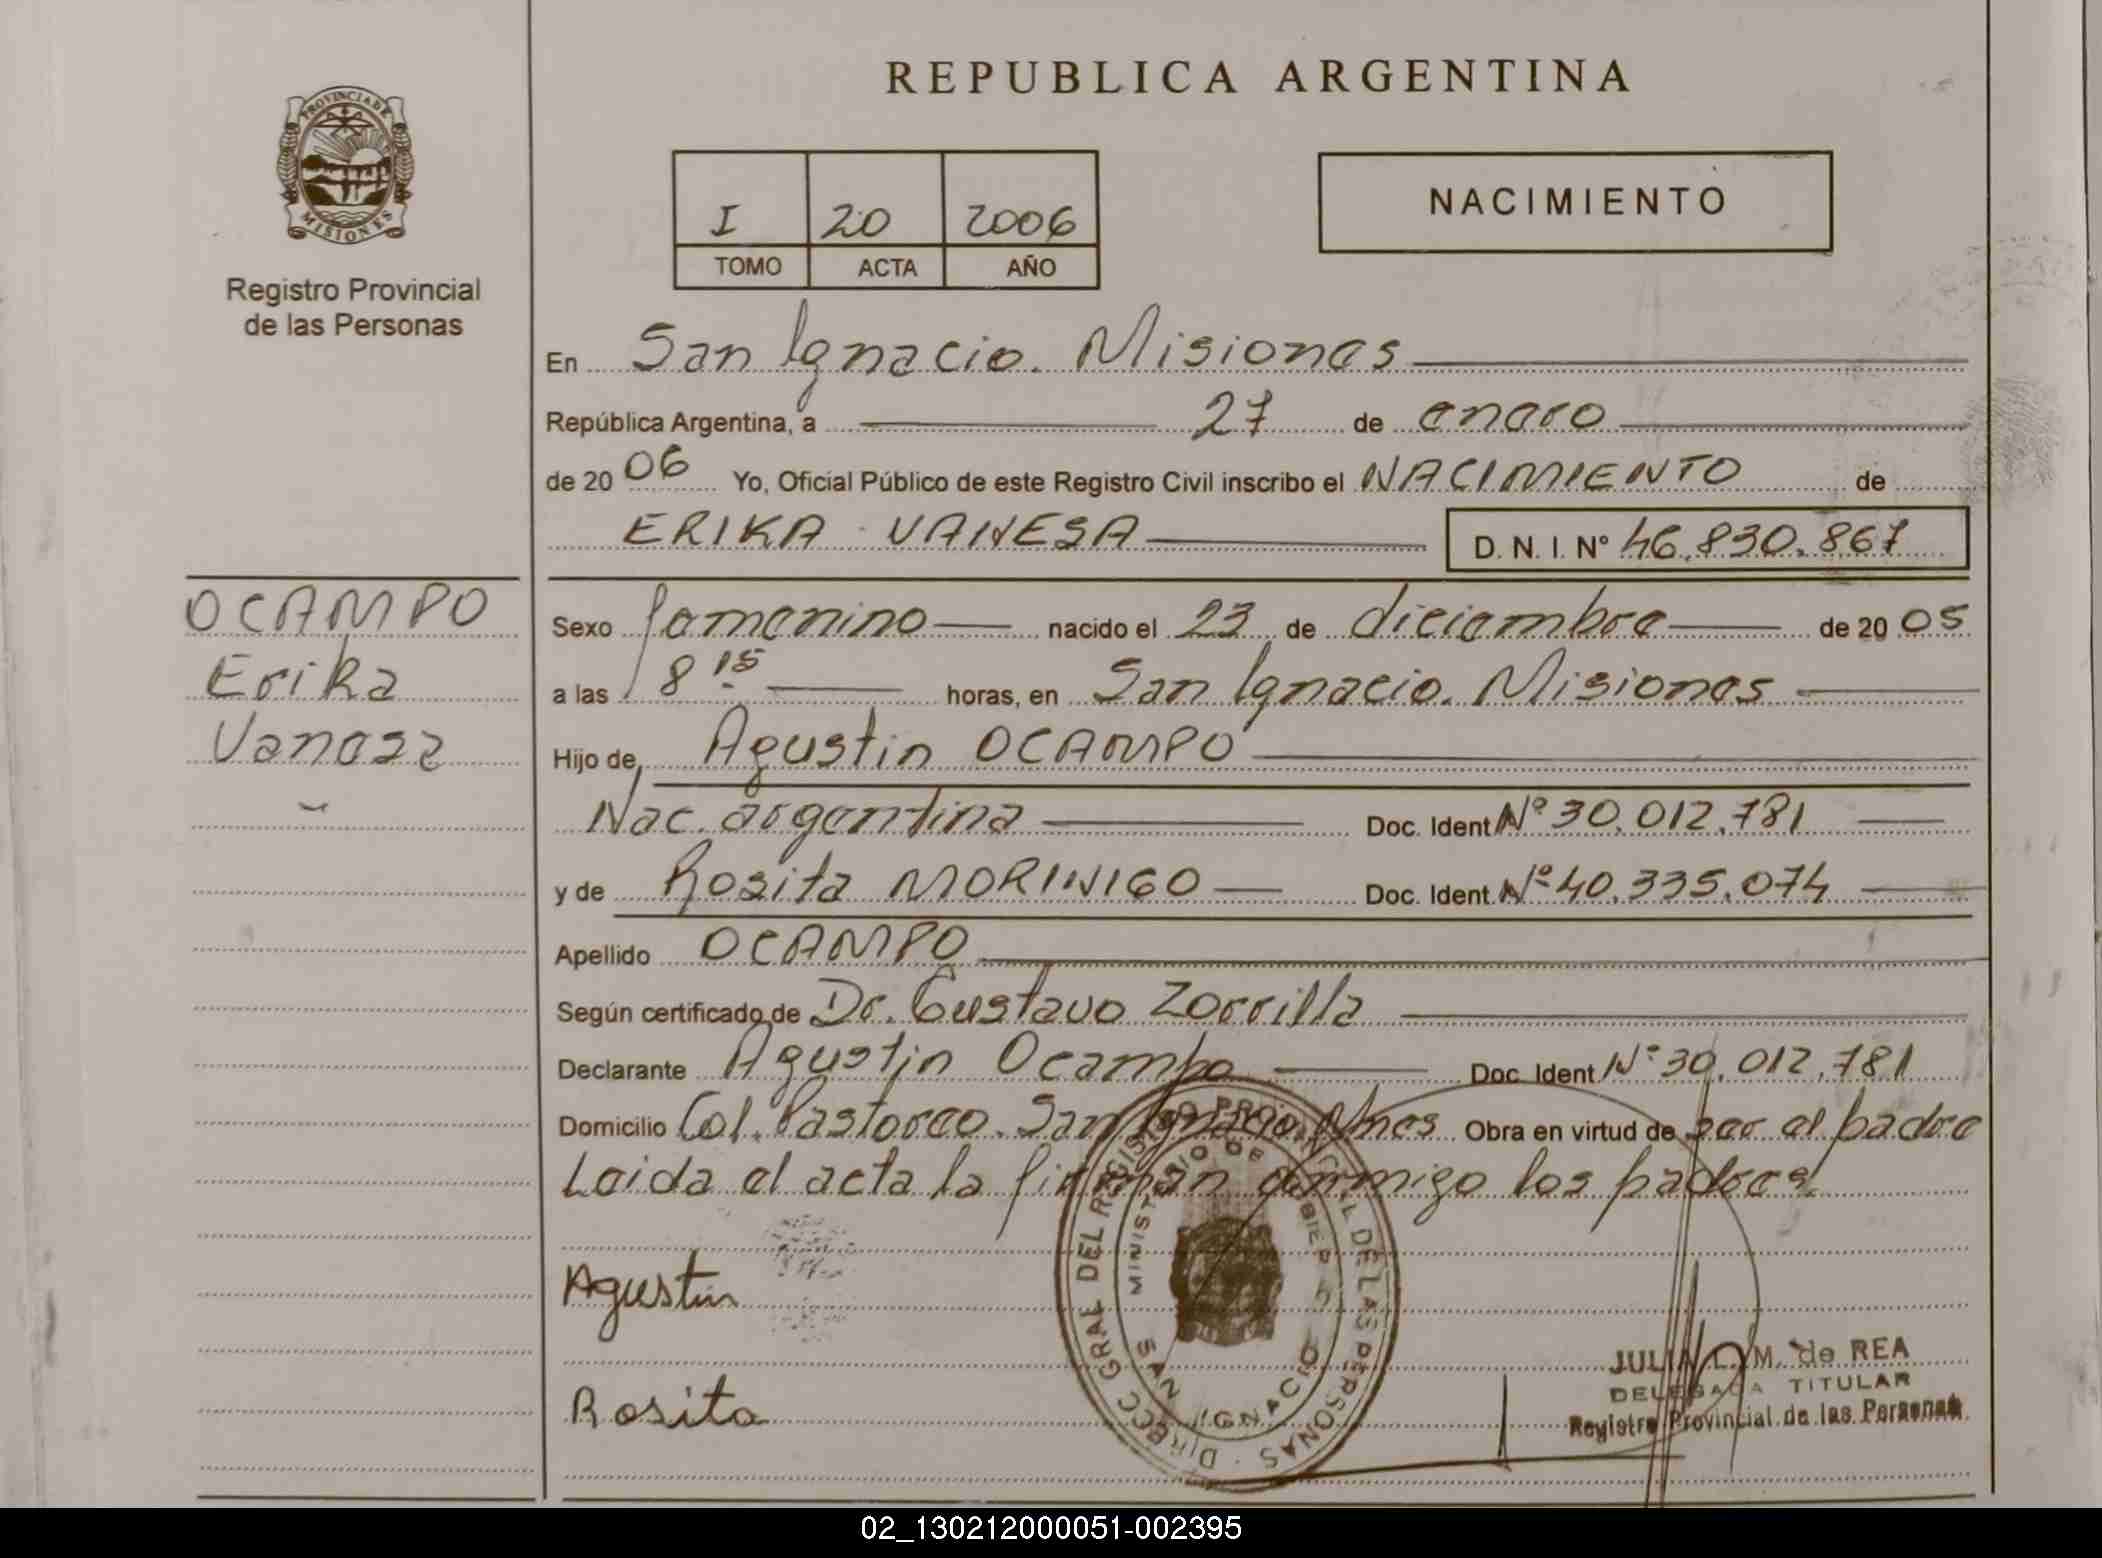 REPUBLICA ARGENTINA
PROVINCIA DE
MISIONES
Registro Provincial
de las Personas
I 20 2006
TOMO ACTA AÑO
NACIMIENTO
En San Ignacio. Misiones
República Argentina, a 27 de enero
de 2006 Yo, Oficial Público de este Registro Civil inscribo el NACIMIENTO de
ERIKA VANESA D. N. I. N° 46.830.867
OCAMPO
Erika
Vanesa
Sexo femenino nacido el 23 de diciembre de 2005
a las 8 15 horas, en San Ignacio. Misiones
Hijo de Agustin OCAMPO
Nac. argentina Doc. Ident Nº 30.012.781
y de Rosita MORINIGO Doc. Ident. Nº 40.335.074
Apellido OCAMPO
Según certificado de Dr. Gustavo Zorrilla
Declarante Agustin Ocampo Doc. Ident Nº 30.012.781
Domicilio Col. Pastoreo. San Ignacio. Mnes Obra en virtud de ser el padre
Leida el acta la firman conmigo los padres
Agustin
Rosita
DIRECC GRAL DEL REGISTRO PROVINCIAL DE LAS PERSONAS
MINISTERIO DE GOBIERNO
SAN IGNACIO
JULIA L. M. de REA
DELEGADA TITULAR
Registro Provincial de las Personas
02_130212000051-002395